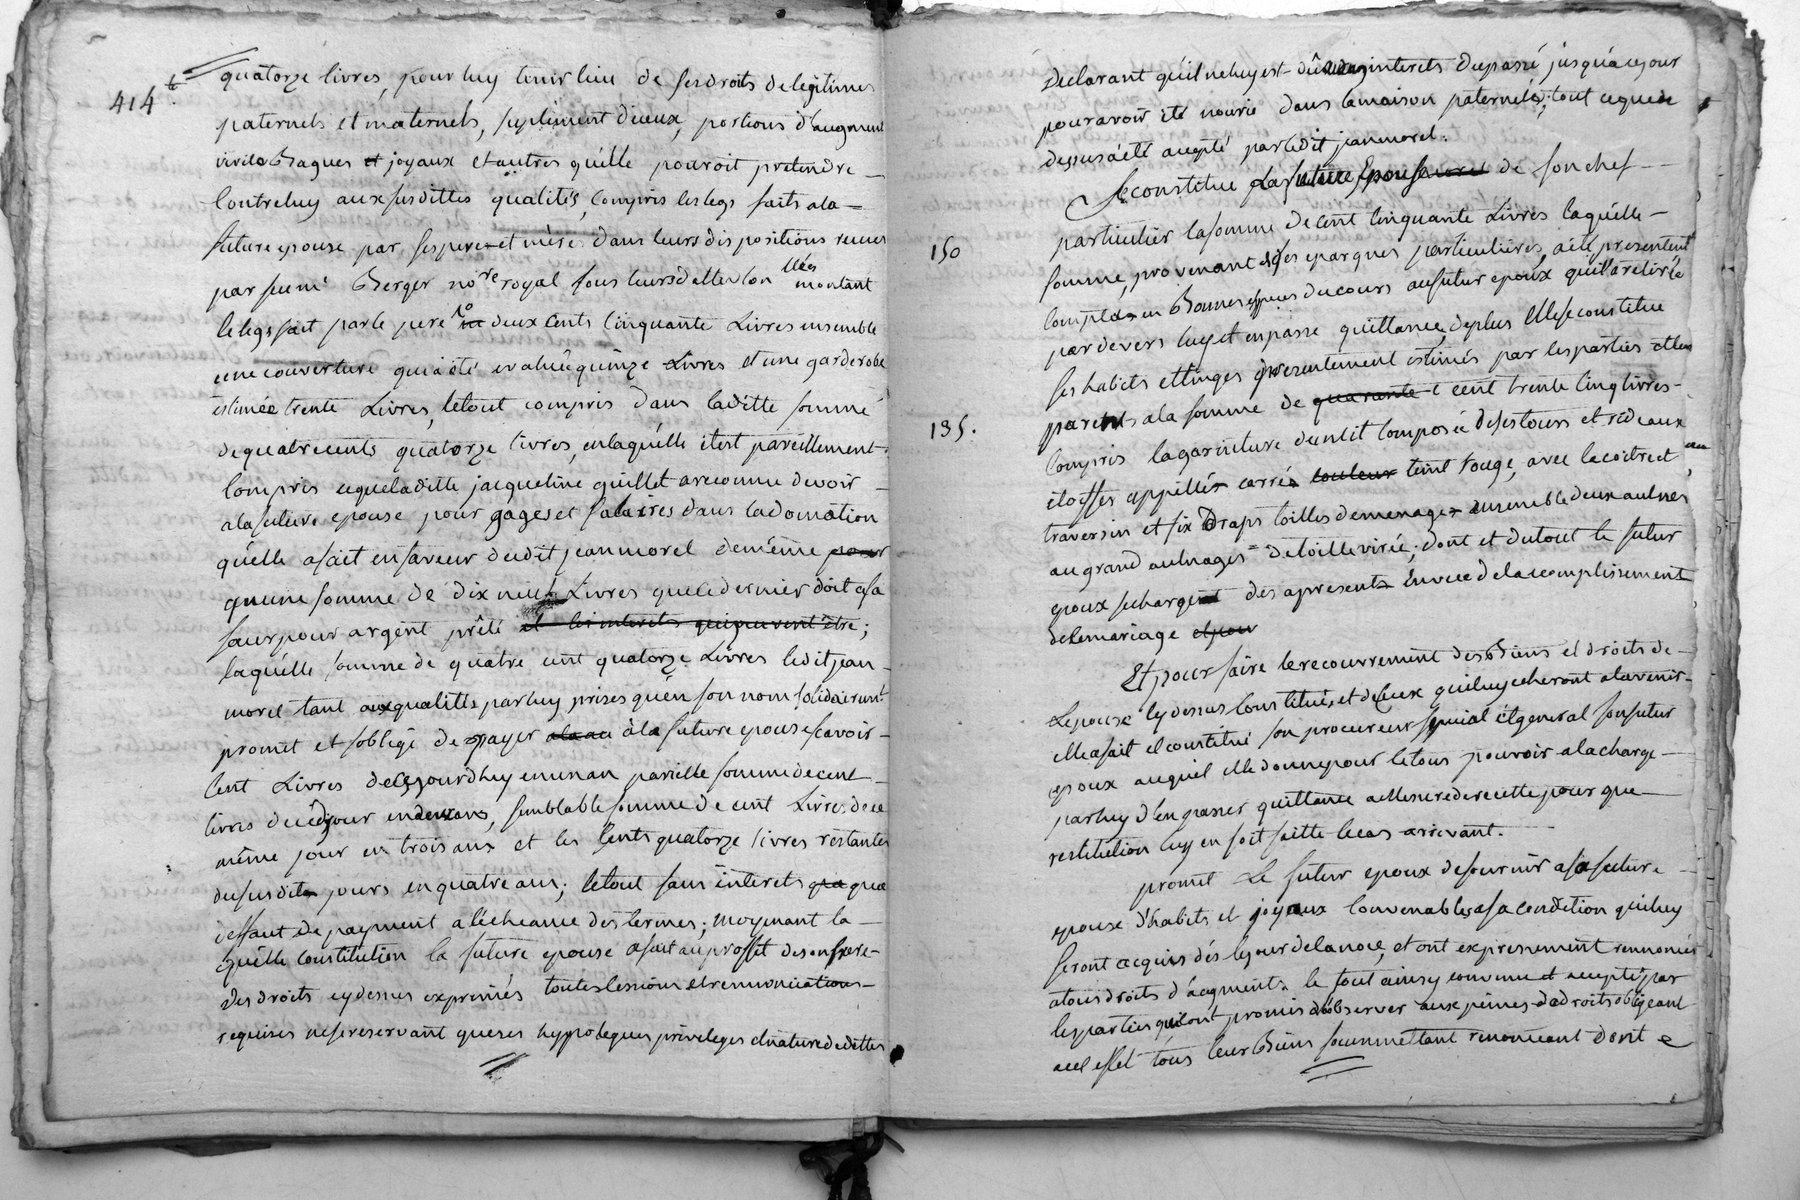 414 #
quatorze livres, pour luy tenir lieu de ses droits de legitimes
paternels et maternels, suplément diceux, portions d'augment
virile bagues et joyaux et autres qu'elle pouroit pretendre
Contre luy aux susdittes qualités, compris les legs faits a la
future epouse par ses pere et mere dans leurs dispositions recues
par feu me Berger nore royal sous leurs dattes Con llées montant
le legs fait par le pere a deux Cents Cinquante Livres ensemble
une couverture qui a été evaluée quinze Livres et une garderobe
estimée trente Livres, le tout compris dans laditte somme
de quatrecents quatorze livres, en laquelle il est pareillement
Compris ceque laditte jacqueline quillet a reconnu devoir
a la future epouse pour gages et salaires dans la donation
qu'elle a fait en faveur dudit jean morel de même pour
qu'une somme de dix neuf Livres que ce dernier doit a sa
sœur pour argent prêté et les interets qui peuvent être;
laquelle somme de quatre cent quatorze Livres ledit jean
morel tant aux qualittés par luy prises qu'en son nom solidairemt
promet et s'oblige de payer à la future epouse scavoir
Cent Livres de cejourdhuy en un an pareille somme de cent
livres dudit jour en deux ans, semblable somme de cent Livres de ce
même jour en trois ans et les Cents quatorze livres restantes
du susdit jours en quatre ans; le tout sans interets qua qua
deffaut de payment a l'écheance des termes; moyenant la
quelle Constitution la future epouse a fait au proffit de son frere
des droits cy dessus exprimés toutes cessions et rennonciations
requises ne se reservant que ses hyppoteques privileges et nature de dettes
declarant qu'il ne luy est dû interets du passé jusqu'à ce jour
pour avoir été nourie dans la maison paternele; tout ce que
dessus a été accepté par ledit jean morel.
Se constitue la future Epouse de son chef
particulier la somme de Cent Cinquante Livres laquelle
150
somme, provenant de ses epargnes particulieres, a été presentemt
Comptée en Bonnes especes du cours au futur epoux qui l'a retirée
par devers luy et en passe quittance, de plus Elle se constitue
ses habits et linges presentement estimés par les parties et leurs
parents a la somme de quarante cent trente Cinq livres
135.
Compris la garniture d'un lit Composée de ses tours et rideaux
etoffes appellés carréa couleur teint rouge, avec la coitre et
traversin et six Draps toilles de menage ensemble deux aulnes
au grand aulnages de toille virée; dont et du tout le futur
epoux se charge dés a present En vue de l'accomplissement
de le mariage et pour
Et pour faire le recouvrement des Biens et droits de
Lepouse Cy dessus Constitués, et de Ceux qui luy echeront a l'avenir
elle a fait et constitué son procureur special et general son futur
epoux auquel elle donne pour le tous pouvoir a la charge
par luy d'en passer quittance a Mesure de recette pour que
restitution luy en soit faitte le cas arrivant.
promet Le futur epoux de fournir a sa future
epouse d'habits et joyaux Convenables a sa condition qui luy
seront acquis dés le jour de la noce, et ont expressement rennoncés
a tous droits d'augments le tout ainsy convenu et accepté par
les parties qui ont promis d'observer aux peines de droits obligeant
a cet effet tous leurs Biens soummettant renonceant Dont